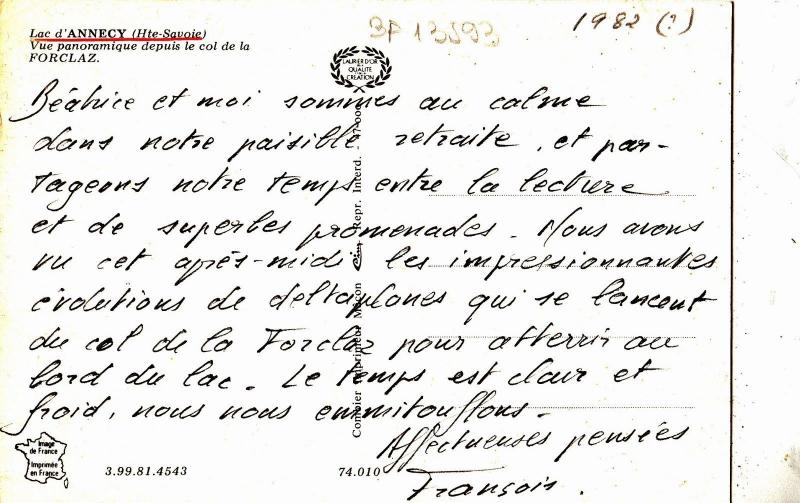 Lac d'ANNECY (Hte-Savoie)
Vue panoramique depuis le col de la
FORCLAZ.
BF 13593
1982 (?)
LAURIER D'OR
DE LA
QUALITÉ
CREATION
Béatrice et moi sommes au calme
dans notre paisible retraite, et par-
tageons notre temps entre la lecture
et de superbes promenades. Nous avons
vu cet après-midi les impressionnantes
évolutions de deltaplanes qui se lancent
du col de la Forclaz pour atterrir au
bord du lac. Le temps est clair et
froid, nous nous emmitouflons.
Affectueuses pensées
François.
Combier Imprimeur Mâcon Cim Repr. Interd.
Image
de France
Imprimée
en France
3.99.81.4543
74.010